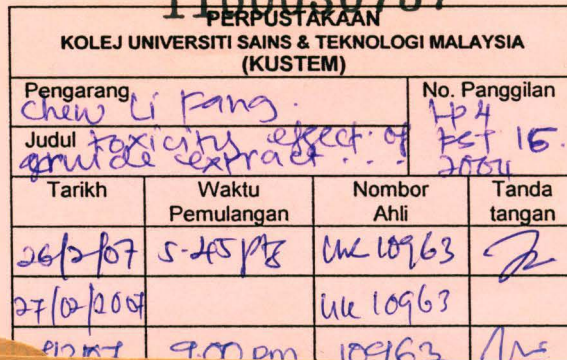 PERPUSTAKAAN
KOLEJ UNIVERSITI SAINS & TEKNOLOGI MALAYSIA
(KUSTEM)
Pengarang No. Panggilan
Chew Li Fang. LP 4
Judul toxicity effect of FST 15.
extract . . . 2004
Tarikh Waktu Pemulangan Nombor Ahli Tanda tangan
26/2/07 5-45 ptg UK 10963
27/02/2007 UK 10963
9.00 pm 10963